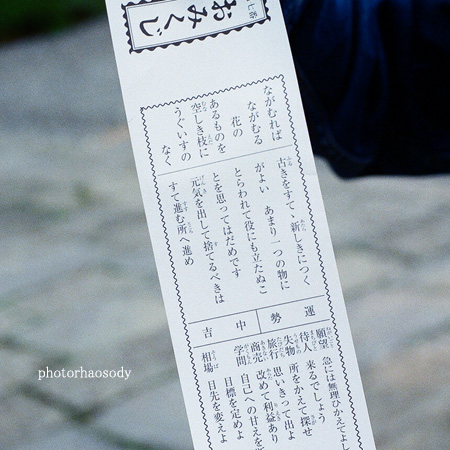 おみくじ
ながむれば
ながむる
花の
あるものを
空しき枝に
うぐいすの
なく
古きをすてゝ新しきにつく
がよい あまり一つの物に
とらわれて役にも立たぬこ
とを思ってはだめです
元気を出して捨てるべきは
すて進む所へ進め
運勢
中吉
願望 急には無理ひかえてよし
待人 来るでしょう
失物 所をかえて探せ
旅行 思いきって出よ
商売 改めて利益あり
学問 自己への甘えを
目標を定めよ
相場 目先を変えよ
photorhaosody